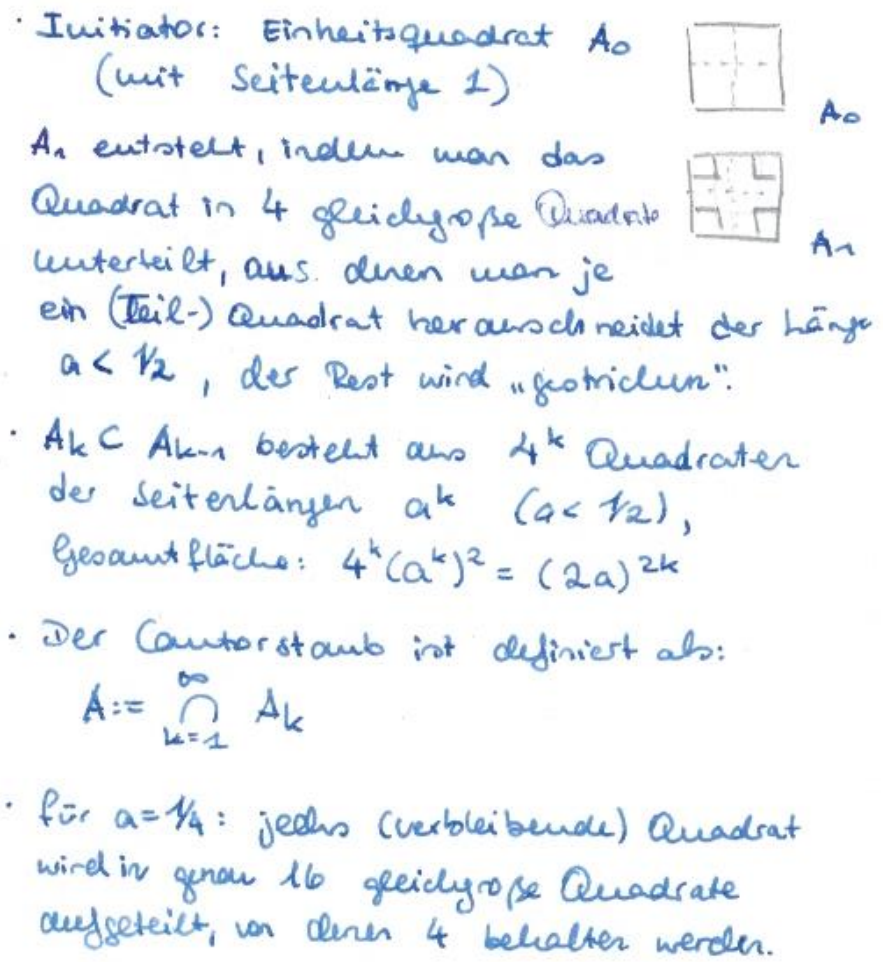 · Initiator: Einheitsquadrat A₀
(mit Seitenlänge 1)
A₀
A₁ entsteht, indem man das
Quadrat in 4 gleichgroße Quadrate
A₁
unterteilt, aus denen man je
ein (Teil-) Quadrat herausschneidet der Länge
a < 1/2, der Rest wird „gestrichen".
· Aₖ ⊂ Aₖ₋₁ besteht aus 4ᵏ Quadraten
der Seitenlängen aᵏ (a < 1/2),
Gesamtfläche: 4ᵏ(aᵏ)² = (2a)²ᵏ
· Der Cantorstaub ist definiert als:
A := ⋂_{k=1}^{∞} Aₖ
· für a = 1/4: jedes (verbleibende) Quadrat
wird in genau 16 gleichgroße Quadrate
aufgeteilt, von denen 4 behalten werden.